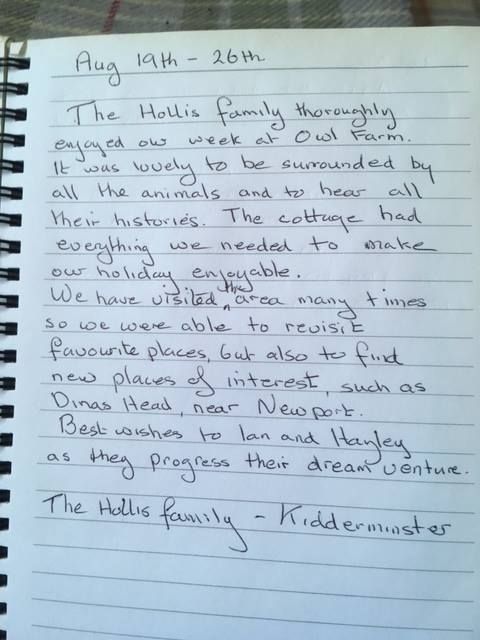 Aug 19th - 26th
The Hollis family thoroughly
enjoyed our week at Owl Farm.
It was lovely to be surrounded by
all the animals and to hear all
their histories. The cottage had
everything we needed to make
our holiday enjoyable.
We have visited the area many times
so we were able to revisit
favourite places, but also to find
new places of interest, such as
Dinas Head, near Newport.
Best wishes to Ian and Hayley
as they progress their dream venture.
The Hollis family - Kidderminster